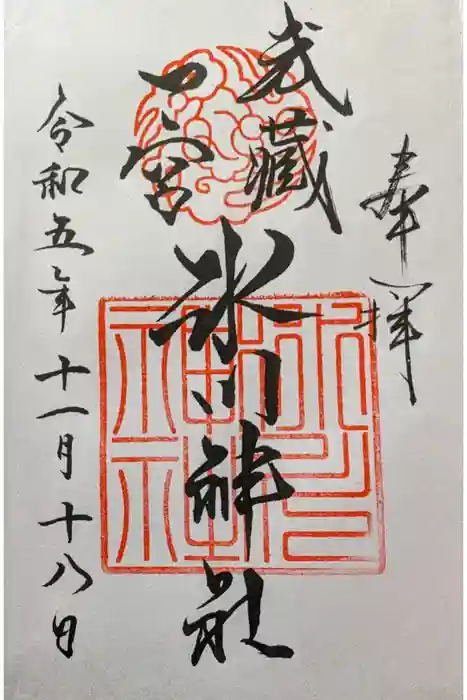 奉拝
武蔵
一宮
氷川神社
令和五年十一月十八日
氷川神社